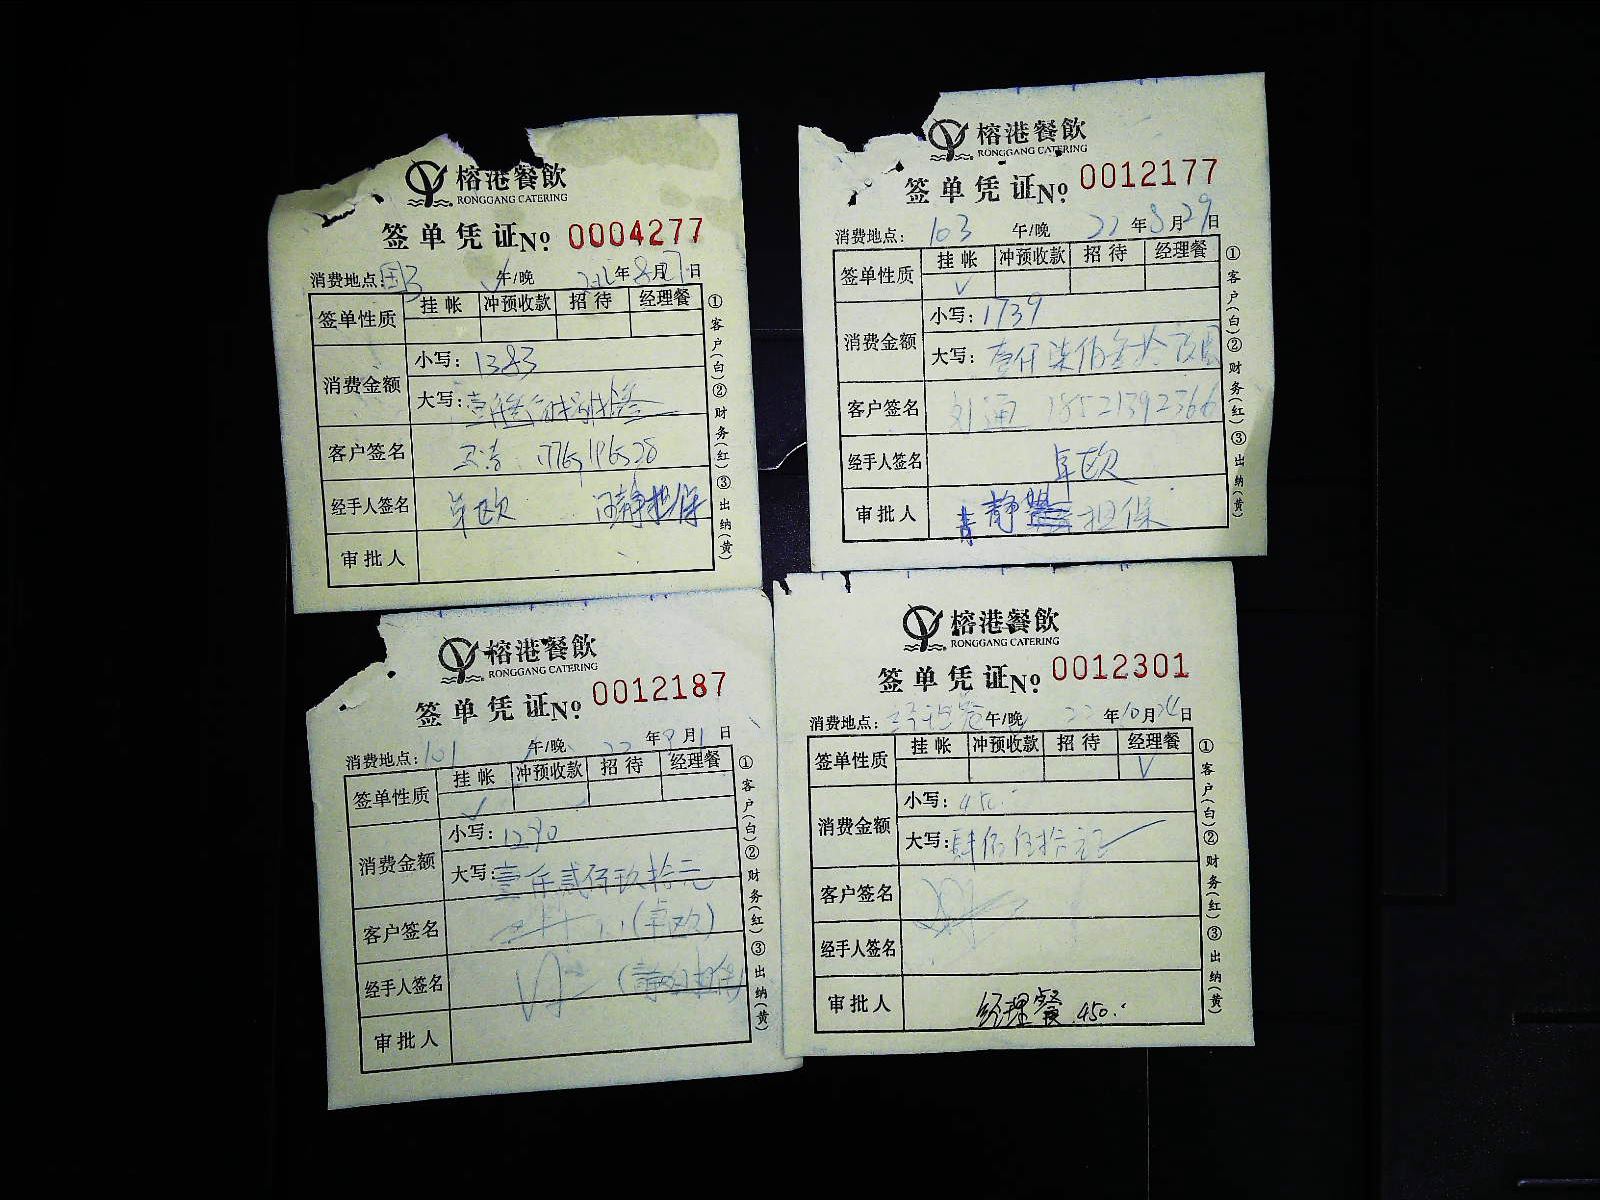 榕港餐飲
RONGGANG CATERING
签单凭证 No. 0004277
消费地点: 午/晚 年 8 月 日
签单性质 挂帐 冲预收款 招待 经理餐
消费金额 小写: 1383
大写:
客户签名
经手人签名 卓欧 担保
审批人
①客户(白)②财务(红)③出纳(黄)
榕港餐飲
RONGGANG CATERING
签单凭证 No. 0012177
消费地点: 103 午/晚 22 年 8 月 29 日
签单性质 挂帐 冲预收款 招待 经理餐
√
消费金额 小写: 1739
大写: 壹仟柒佰叁拾玖圆
客户签名 刘通 18521392366
经手人签名 卓欧
审批人 静 担保
①客户(白)②财务(红)③出纳(黄)
榕港餐飲
RONGGANG CATERING
签单凭证 No. 0012187
消费地点: 101 午/晚 22 年 9 月 1 日
签单性质 挂帐 冲预收款 招待 经理餐
√
消费金额 小写: 1290
大写: 壹仟贰佰玖拾元
客户签名 (卓欧)
经手人签名
审批人
①客户(白)②财务(红)③出纳(黄)
榕港餐飲
RONGGANG CATERING
签单凭证 No. 0012301
消费地点: 午/晚 22 年 10 月 24 日
签单性质 挂帐 冲预收款 招待 经理餐
√
消费金额 小写: 450.
大写: 肆佰伍拾元正
客户签名
经手人签名
审批人 经理餐 450.
①客户(白)②财务(红)③出纳(黄)